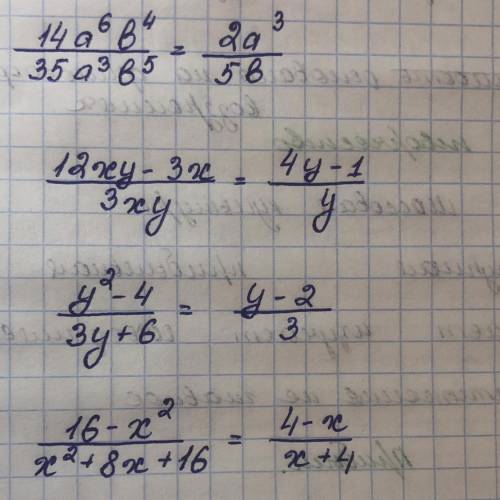 14a⁶b⁴/35a³b⁵ = 2a³/5b
12xy-3x/3xy = 4y-1/y
y²-4/3y+6 = y-2/3
16-x²/x²+8x+16 = 4-x/x+4